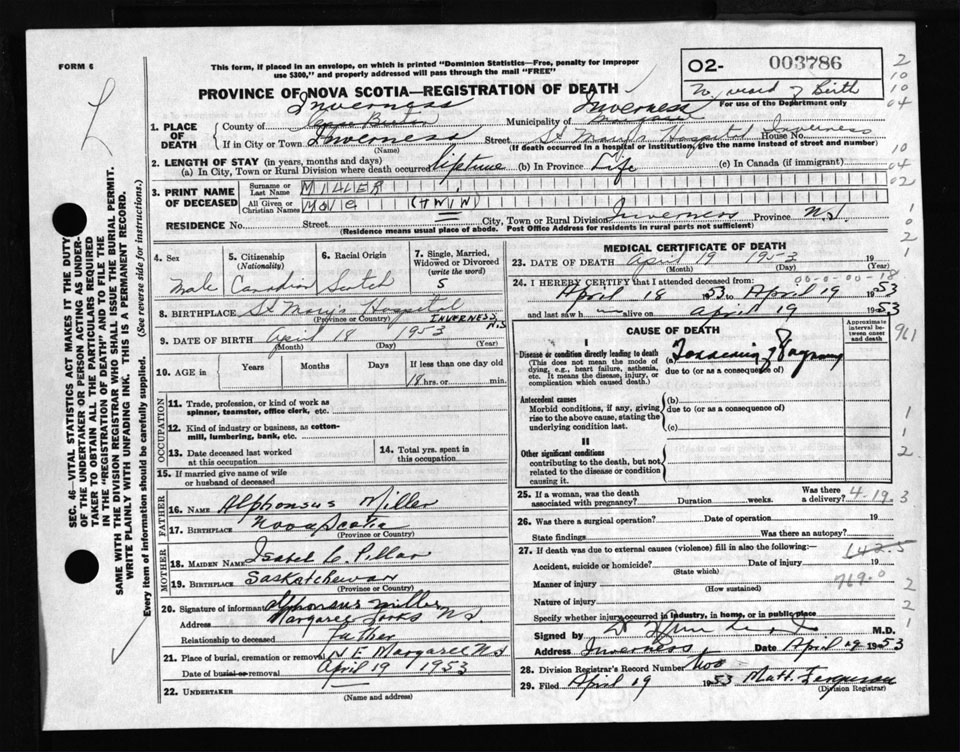 FORM 6
This form, if placed in an envelope, on which is printed "Dominion Statistics—Free, penalty for improper
use $300," and properly addressed will pass through the mail "FREE"
O2- 003786
PROVINCE OF NOVA SCOTIA—REGISTRATION OF DEATH
No record of Birth
For use of the Department only
Inverness
Inverness
1. PLACE OF DEATH
County of Cape Breton
Municipality of Margaree
If in City or Town Inverness Street St Mary's Hospital Inverness House No.
(Name) (If death occurred in a hospital or institution, give the name instead of street and number)
2. LENGTH OF STAY (in years, months and days)
(a) In City, Town or Rural Division where death occurred lifetime (b) In Province Life (c) In Canada (if immigrant)
3. PRINT NAME OF DECEASED
Surname or Last Name MILLER
All Given or Christian Names (TWIN)
RESIDENCE No. Street City, Town or Rural Division Inverness Province N.S.
(Residence means usual place of abode. Post Office Address for residents in rural parts not sufficient)
4. Sex Male
5. Citizenship (Nationality) Canadian
6. Racial Origin Scotch
7. Single, Married, Widowed or Divorced (write the word) S
8. BIRTHPLACE St Mary's Hospital INVERNESS N.S.
(Province or Country)
9. DATE OF BIRTH April 18 1953
(Month) (Day) (Year)
10. AGE in Years Months Days If less than one day old
18 hrs. or min.
OCCUPATION
11. Trade, profession, or kind of work as spinner, teamster, office clerk, etc.
12. Kind of industry or business, as cotton-mill, lumbering, bank, etc.
13. Date deceased last worked at this occupation
14. Total yrs. spent in this occupation
15. If married give name of wife or husband of deceased
FATHER
16. NAME Alphonsus Miller
17. BIRTHPLACE Nova Scotia
(Province or Country)
MOTHER
18. MAIDEN NAME Isabel C. Pillar
19. BIRTHPLACE Saskatchewan
(Province or Country)
20. Signature of informant Alphonsus Miller
Address Margaree Forks N.S.
Relationship to deceased Father
21. Place of burial, cremation or removal N E Margaree N.S.
Date of burial or removal April 19 1953
22. UNDERTAKER
(Name and address)
MEDICAL CERTIFICATE OF DEATH
23. DATE OF DEATH April 19 1953 19
(Month) (Day) (Year)
00-0-00-18
24. I HEREBY CERTIFY that I attended deceased from:
April 18 1953 to April 19 1953
and last saw h im alive on April 19 1953
CAUSE OF DEATH
Approximate interval between onset and death
I
Disease or condition directly leading to death
(This does not mean the mode of dying, e.g., heart failure, asthenia, etc. It means the disease, injury, or complication which caused death.)
(a) Toxaemia of Pregnancy
due to (or as a consequence of)
Antecedent causes
Morbid conditions, if any, giving rise to the above cause, stating the underlying condition last.
(b)
due to (or as a consequence of)
(c)
II
Other significant conditions contributing to the death, but not related to the disease or condition causing it.
25. If a woman, was the death associated with pregnancy? Duration weeks. Was there a delivery? 4-19.3
26. Was there a surgical operation? Date of operation 19
State findings Was there an autopsy?
27. If death was due to external causes (violence) fill in also the following:— 642.5
Accident, suicide or homicide? Date of injury 19
(State which)
769.0
Manner of injury
(How sustained)
Nature of injury
Specify whether injury occurred in industry, in home, or in public place
Signed by M.D.
Address Inverness Date April 19 1953
28. Division Registrar's Record Number two
29. Filed April 19 1953 Matt. Ferguson
(Division Registrar)
SEC. 46 VITAL STATISTICS ACT MAKES IT THE DUTY
OF THE UNDERTAKER OR PERSON ACTING AS UNDER-
TAKER TO OBTAIN ALL THE PARTICULARS REQUIRED
IN THE "REGISTRATION OF DEATH" AND TO FILE THE
SAME WITH THE DIVISION REGISTRAR WHO SHALL ISSUE THE BURIAL PERMIT.
WRITE PLAINLY WITH UNFADING INK. THIS IS A PERMANENT RECORD.
Every item of information should be carefully supplied. (See reverse side for instructions.)